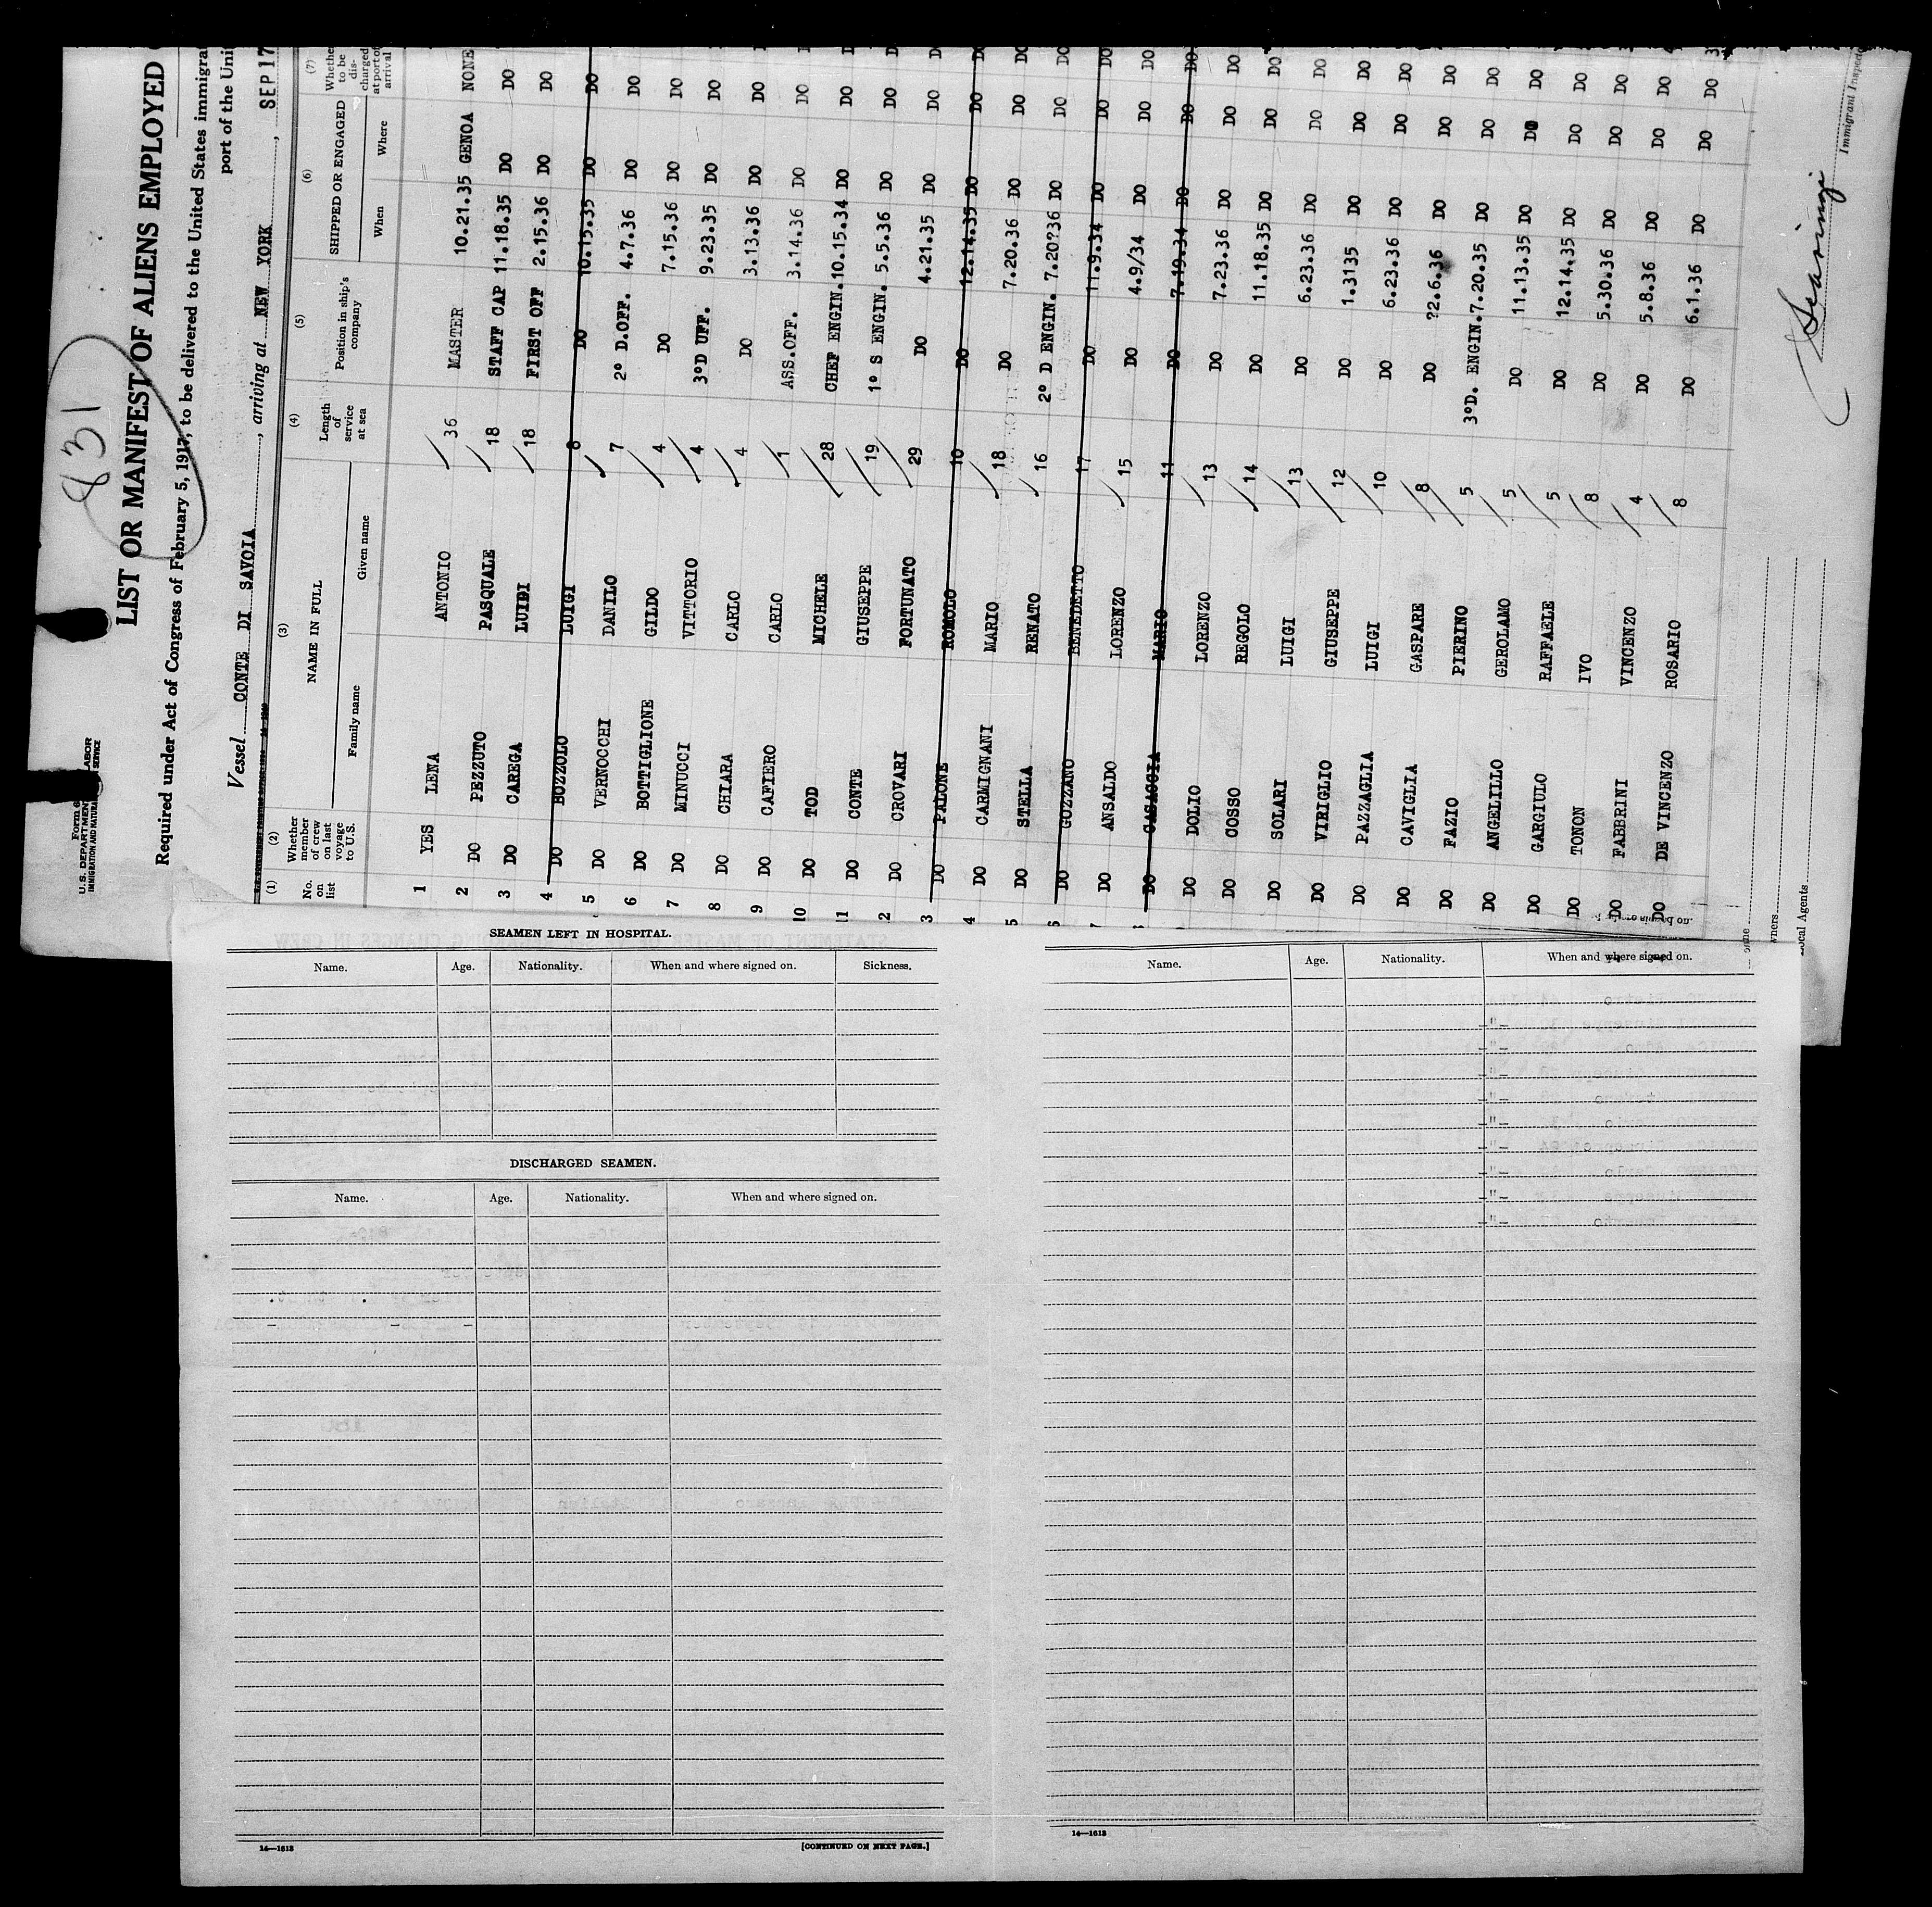 831
Form 6
U.S. DEPARTMENT LABOR
IMMIGRATION AND NATURAL SERVICE
LIST OR MANIFEST OF ALIENS EMPLOYED
Required under Act of Congress of February 5, 1917, to be delivered to the United States immigrat
port of the Unit
Vessel CONTE DI SAVOIA, arriving at NEW YORK, SEP 17
(1) (2) (3) (4) (5) (6) (7)
No. on list Whether member of crew on last voyage to U.S. NAME IN FULL Length of service at sea Position in ship's company SHIPPED OR ENGAGED Whether to be discharged at port of arrival
Family name Given name When Where
1 YES LENA ANTONIO 36 MASTER 10.21.35 GENOA NONE
2 DO PEZZUTO PASQUALE 18 STAFF CAP 11.18.35 DO DO
3 DO CAREGA LUIGI 18 FIRST OFF 2.15.36 DO DO
4 DO BOZZOLO LUIGI 8 DO 10.15.35 DO DO
5 DO VERNOCCHI DANILO 7 2º D.OFF. 4.7.36 DO DO
6 DO BOTTIGLIONE GILDO 4 DO 7.15.36 DO DO
7 DO MINUCCI VITTORIO 4 3ºD UFF. 9.23.35 DO DO
8 DO CHIARA CARLO 4 DO 3.13.36 DO DO
9 DO CAFIERO CARLO 1 ASS.OFF. 3.14.36 DO DO
10 DO TOD MICHELE 28 CHEF ENGIN. 10.15.34 DO DO
11 DO CONTE GIUSEPPE 19 1º S ENGIN. 5.5.36 DO DO
2 DO CROVARI FORTUNATO 29 DO 4.21.35 DO DO
3 DO PALONE ROMOLO 10 DO 12.14.35 DO DO
4 DO CARMIGNANI MARIO 18 DO 7.20.36 DO DO
5 DO STELLA RENATO 16 2º D ENGIN. 7.20?36 DO DO
6 DO GOZZANO BENEDETTO 17 DO 11.9.34 DO DO
7 DO ANSALDO LORENZO 15 DO 4.9/34 DO DO
8 DO CASACCIA MARIO 11 DO 7.19.34 DO DO
DO DOLIO LORENZO 13 DO 7.23.36 DO DO
DO COSSO REGOLO 14 DO 11.18.35 DO DO
DO SOLARI LUIGI 13 DO 6.23.36 DO DO
DO VIRIGLIO GIUSEPPE 12 DO 1.3135 DO DO
DO PAZZAGLIA LUIGI 10 DO 6.23.36 DO DO
DO CAVIGLIA GASPARE 8 DO ?2.6.36 DO DO
DO FAZIO PIERINO 5 3ºD. ENGIN. 7.20.35 DO DO
DO ANGELILLO GEROLAMO 5 DO 11.13.35 DO DO
DO GARGIULO RAFFAELE 5 DO 12.14.35 DO DO
DO TONON IVO 8 DO 5.30.36 DO DO
DO FABBRINI VINCENZO 4 DO 5.8.36 DO DO
DO DE VINCENZO ROSARIO 8 DO 6.1.36 DO DO
Immigrant Inspector
wners
Local Agents
SEAMEN LEFT IN HOSPITAL.
Name. Age. Nationality. When and where signed on. Sickness.
DISCHARGED SEAMEN.
Name. Age. Nationality. When and where signed on.
14—1613
[CONTINUED ON NEXT PAGE.]
Name. Age. Nationality. When and where signed on.
14—1613